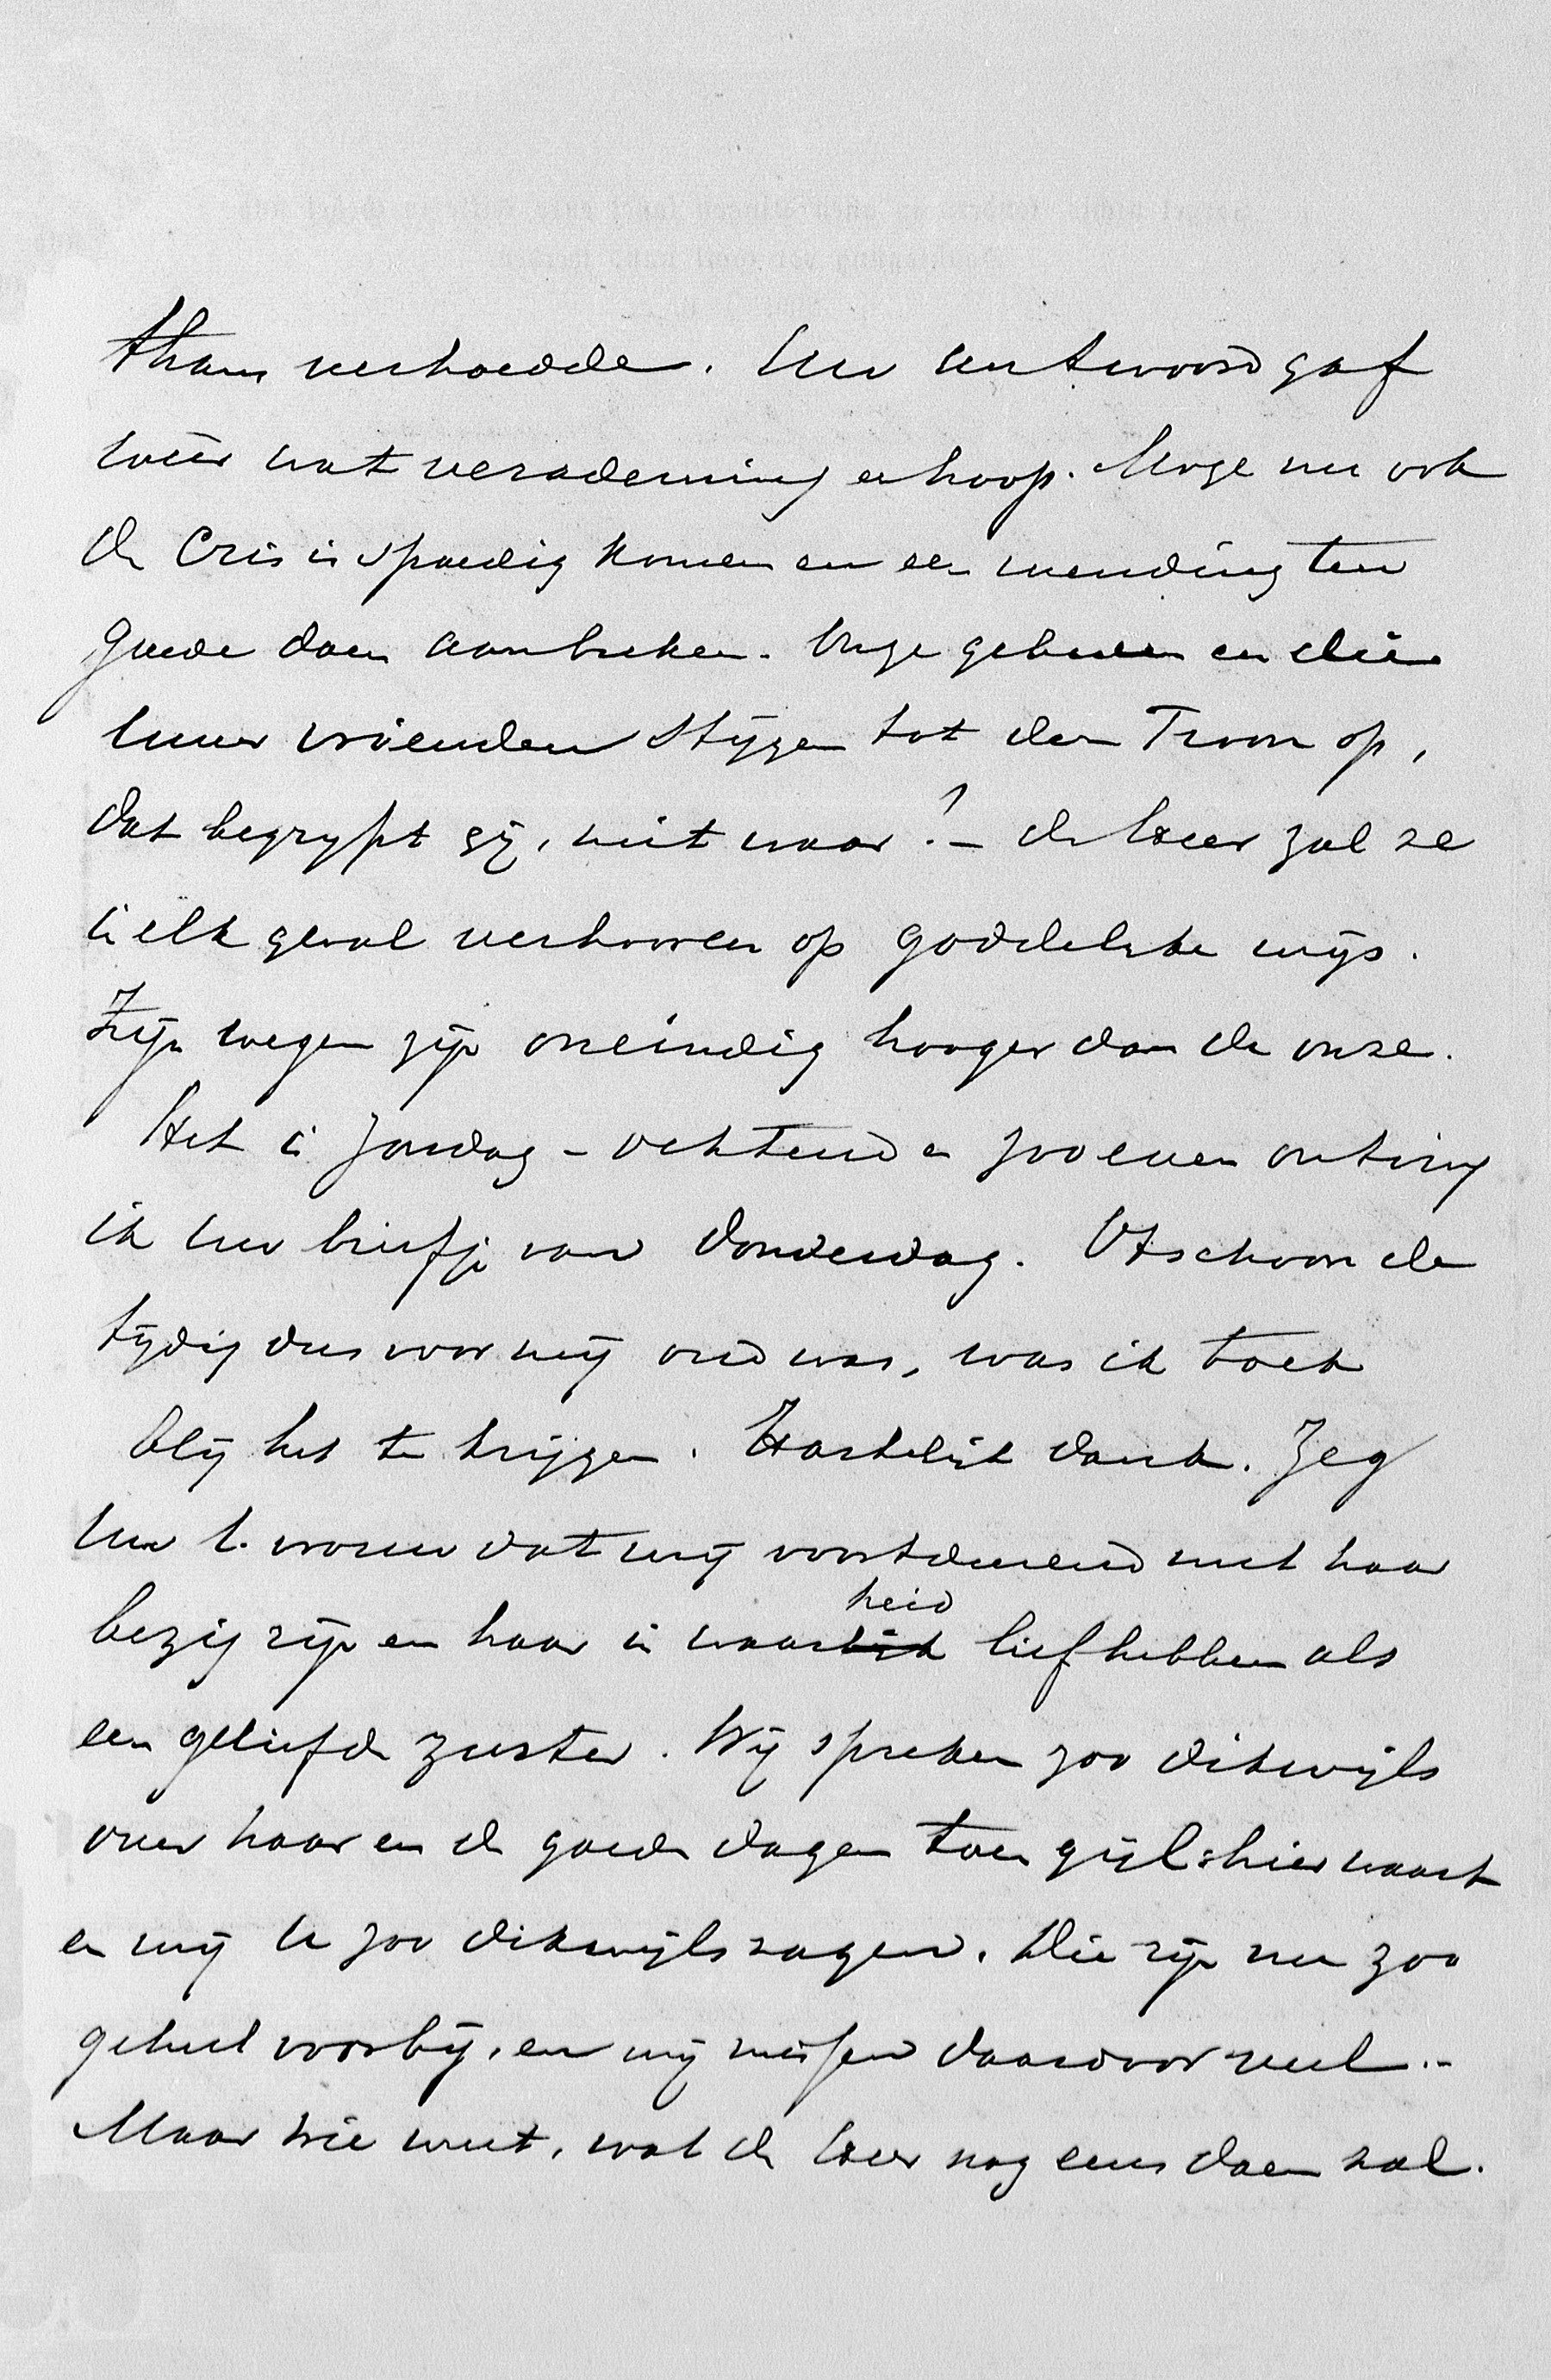 thans verhoedde. Uw antwoord gaf
wêer wat verademing en hoop. Moge nu ook
de Crisis spoedig komen en een wending ten
goede doen aanbreken. Onze gebeden en die
uwer vrienden stijgen tot den Troon op,
dat begrypt gij, niet waar? – de Heer zal ze
in elk geval verhooren op goddelijke wijs.
Zijn wegen zijn oneindig hooger dan de onze.
Het is Zondag-ochtend en zoo even ontving
ik uw briefje van Donderdag. Ofschoon de
tijding dus voor mij oud was, was ik toch
blij het te krijgen. Hartelijk dank. Zeg
uw l. vrouw dat wij voortdurend met haar
bezig zijn en haar in waarheid liefhebben als
een geliefde zuster. Wij spreken zoo dikwijls
over haar en de goede dagen toen gijl: hier waart
en wij U zoo dikwijls zagen. Die zijn nu zoo
geheel voorbij, en wij missen daardoor veel. –
Maar wie weet, wat de Heer nog eens doen zal.